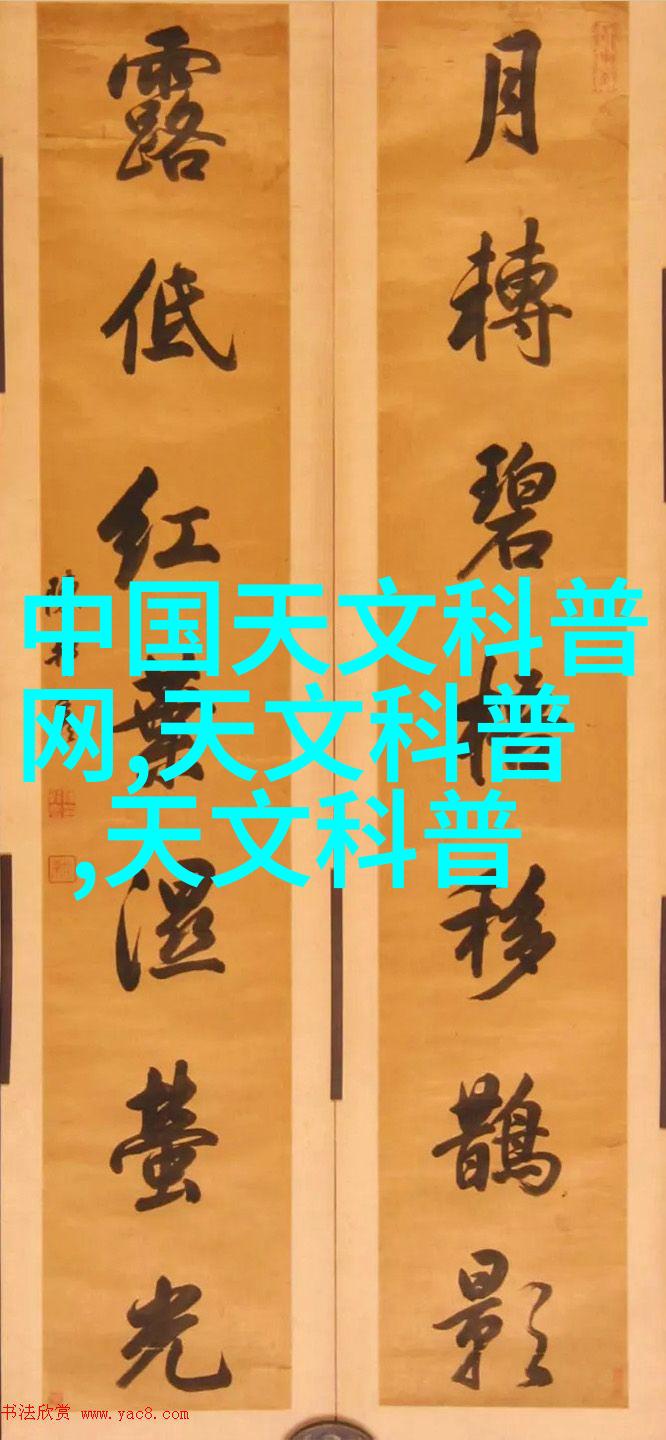 月轉碧梧移鵲影
露低红葉濕螢光
中国天文科普
网,天文科普
,天文科普
书法欣赏 www.yac8.com